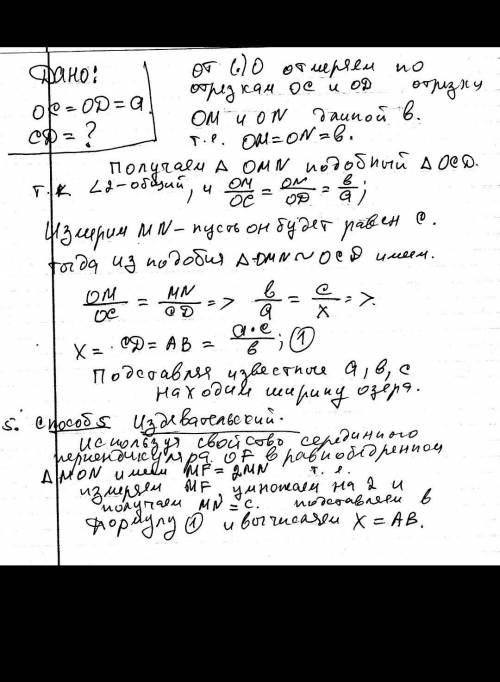 Дано:
OC = OD = a
CD = ?
От (·) O отмеряем по
отрезкам OC и OD отрезки
OM и ON длиной в.
т.е. OM = ON = в.
Получаем Δ OMN подобный Δ OCD.
т.к ∠2 - общий, и OM/OC = ON/OD = в/a;
Измерим MN - пусть он будет равен с.
тогда из подобия Δ OMN ~ OCD имеем.
OM/OC = MN/CD => в/a = c/x =>.
X = CD = AB = a·c/в; ①
Подставляя известные a, в, с
находим ширину озера.
5. Способ 5 Издевательский.
Используя свойство серединного
перпендикуляра OF в равнобедренном
Δ MON имеем MF = 2MN т.е.
измеряем MF, умножаем на 2 и
получаем MN = c. подставляем в
формулу ① и вычисляем X = AB.